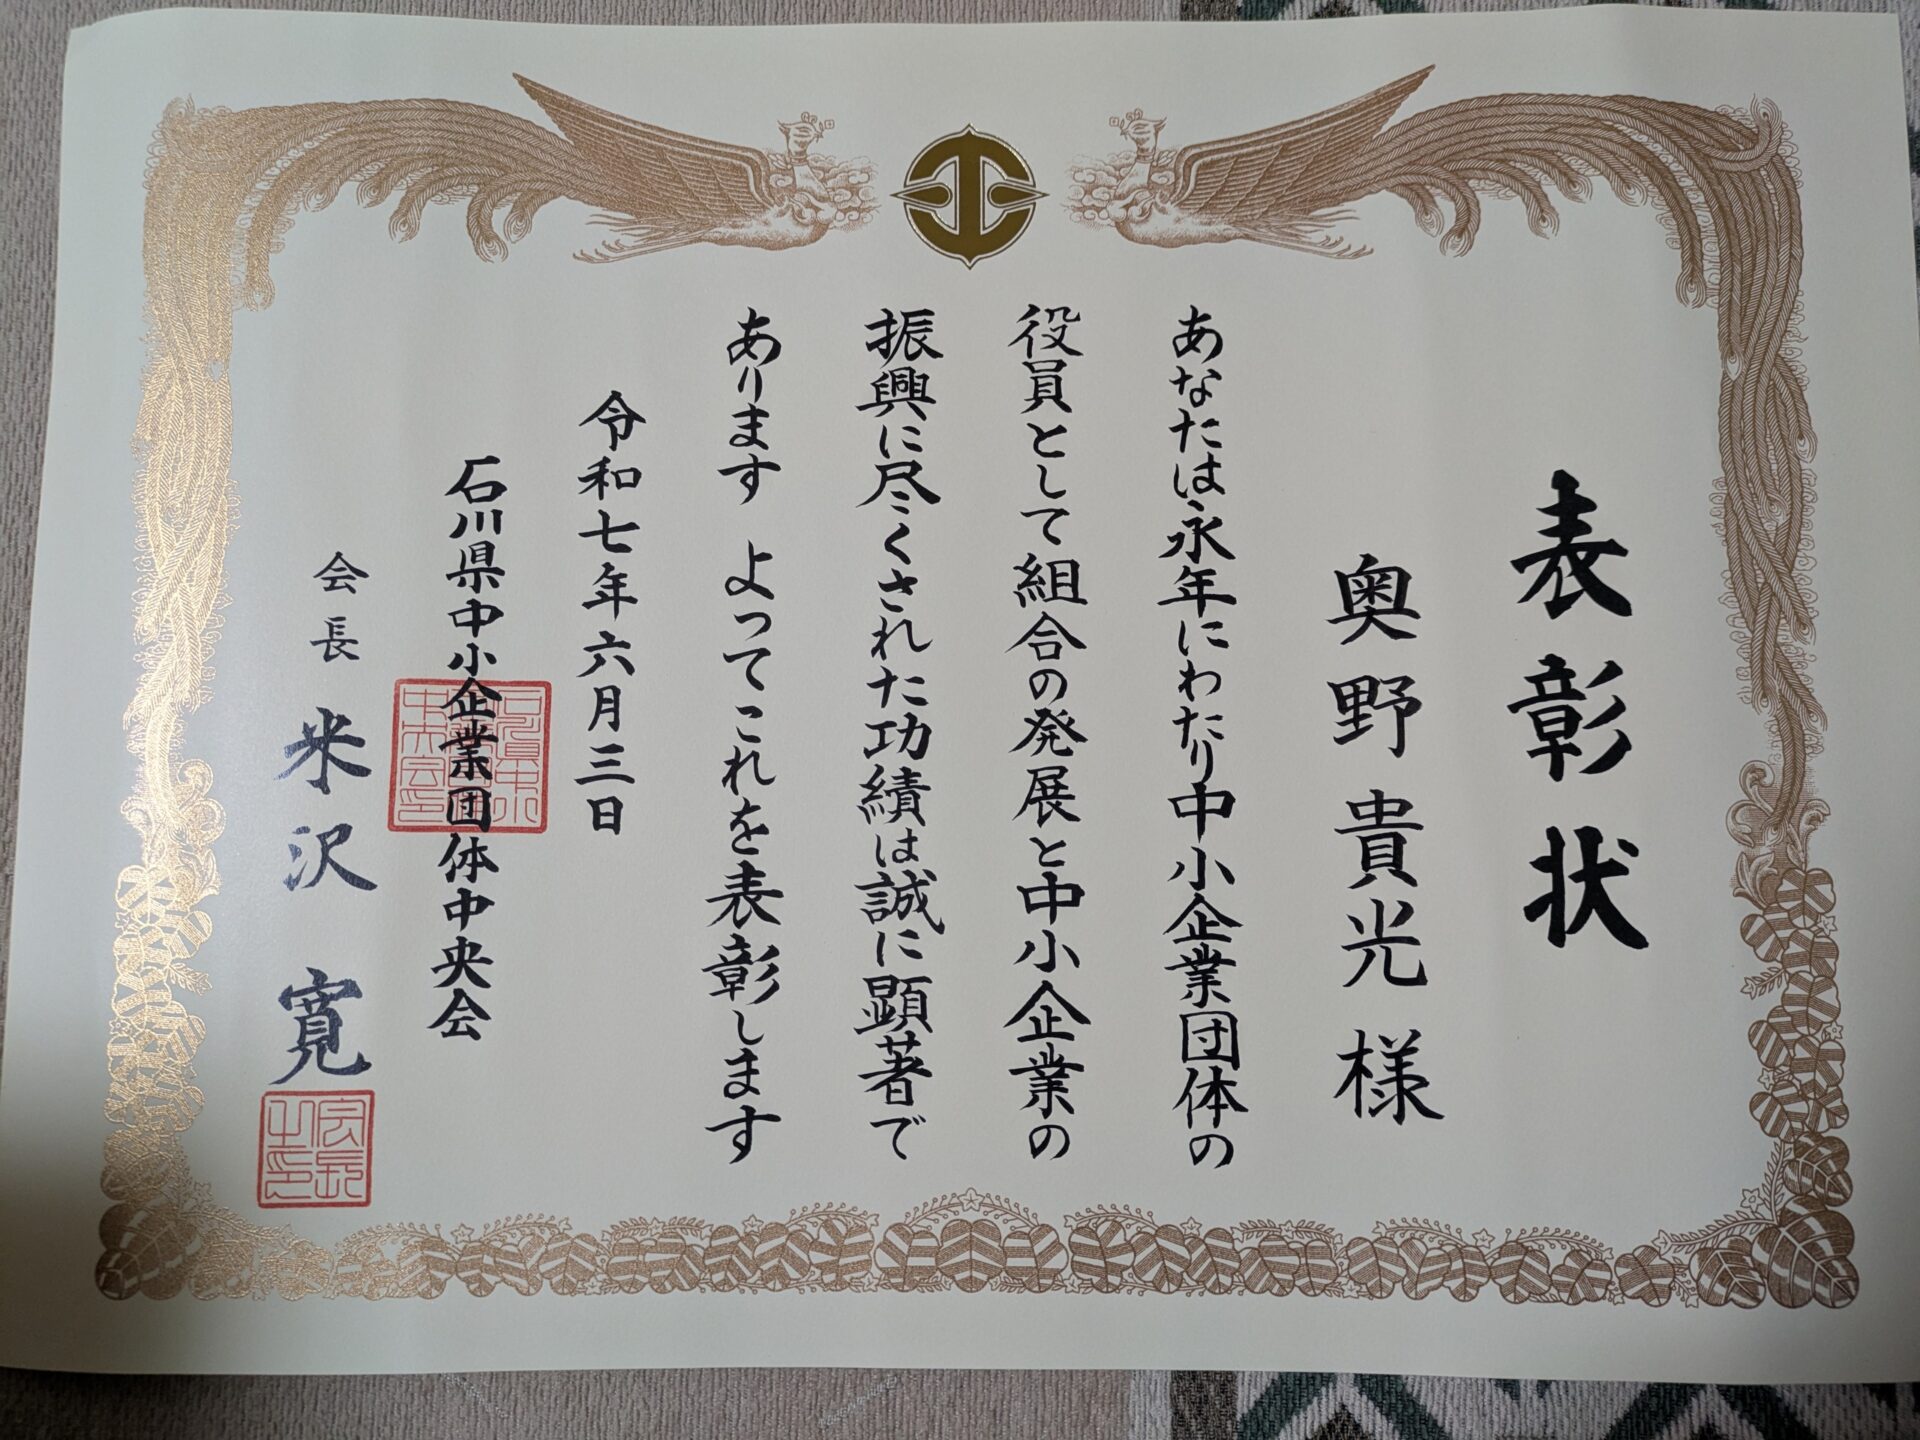 表彰状
奥野貴光様
あなたは永年にわたり中小企業団体の
役員として組合の発展と中小企業の
振興に尽くされた功績は誠に顕著で
あります よってこれを表彰します
令和七年六月三日
石川県中小企業団体中央会
会長 米沢 寛